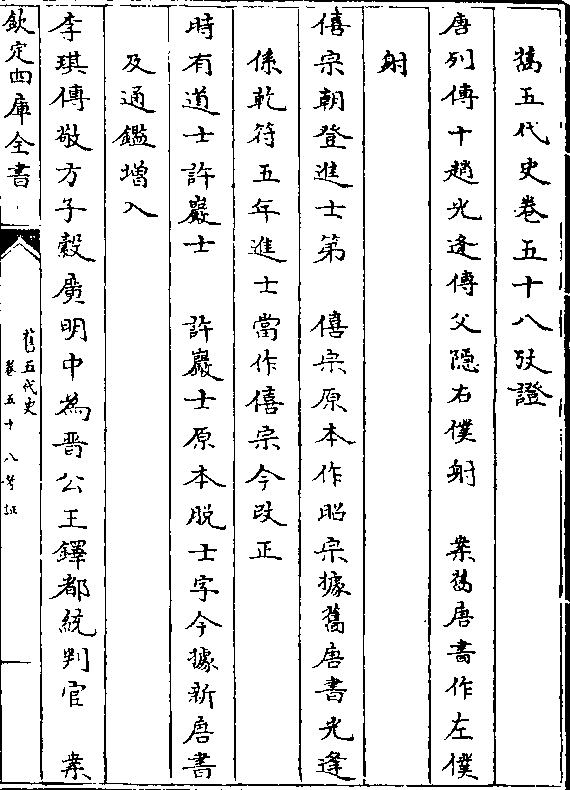 舊五代史卷五十八攷證
唐列傳十趙光逢傳父隱右僕射　案舊唐書作左僕
射
僖宗朝登進士第　僖宗原本作昭宗據舊唐書光逢
係乾符五年進士當作僖宗今改正
時有道士許巖士　許巖士原本脫士字今據新唐書
及通鑑增入
李琪傳敬方子縠廣明中為晋公王鐸都統判官　案
欽定四庫全書
舊五代史
卷五十八考証